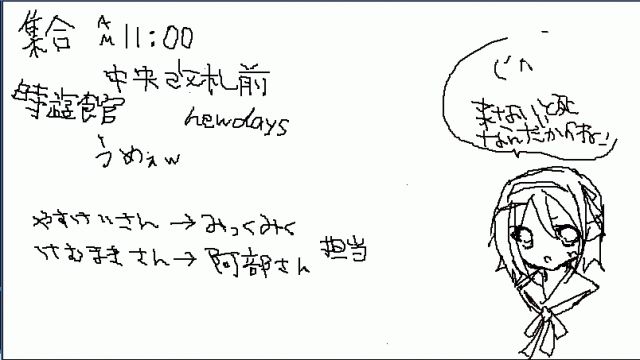 集合 AM 11:00
中央改札前
時遊館
newdays
うめぇw
やすけいさん→みっくみく
けむまきさん→阿部さん 担当
来ないと死
なんだからね!